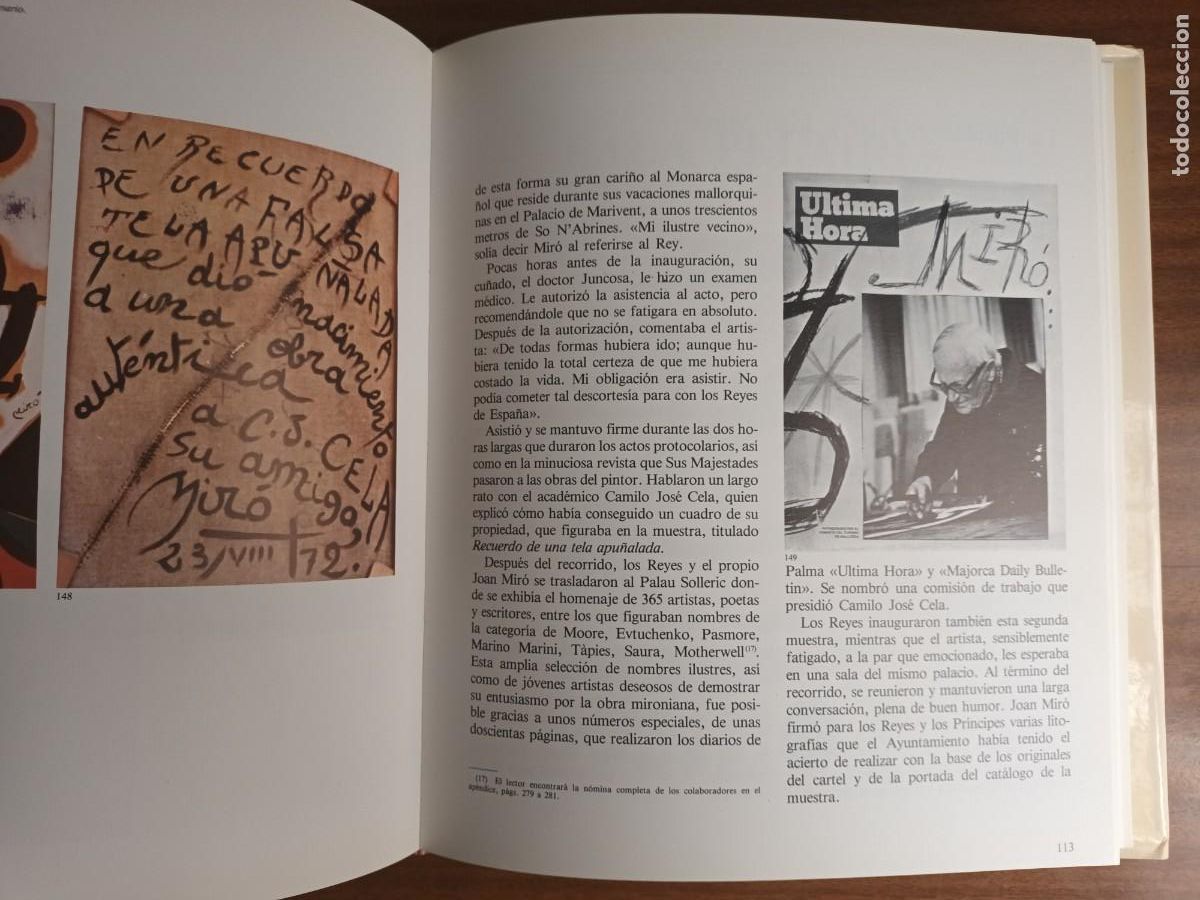 EN RECUERDO
DE UNA FALSA
TELA APUÑALADA,
que dio nacimiento
a una obra
auténtica
a C. J. CELA
su amigo,
Miró
23/VIII/72.
148
miró
de esta forma su gran cariño al Monarca espa-
ñol que reside durante sus vacaciones mallorqui-
nas en el Palacio de Marivent, a unos trescientos
metros de So N'Abrines. «Mi ilustre vecino»,
solía decir Miró al referirse al Rey.
Pocas horas antes de la inauguración, su
cuñado, el doctor Juncosa, le hizo un examen
médico. Le autorizó la asistencia al acto, pero
recomendándole que no se fatigara en absoluto.
Después de la autorización, comentaba el artis-
ta: «De todas formas hubiera ido; aunque hu-
biera tenido la total certeza de que me hubiera
costado la vida. Mi obligación era asistir. No
podía cometer tal descortesía para con los Reyes
de España».
Asistió y se mantuvo firme durante las dos ho-
ras largas que duraron los actos protocolarios, así
como en la minuciosa revista que Sus Majestades
pasaron a las obras del pintor. Hablaron un largo
rato con el académico Camilo José Cela, quien
explicó cómo había conseguido un cuadro de su
propiedad, que figuraba en la muestra, titulado
Recuerdo de una tela apuñalada.
Después del recorrido, los Reyes y el propio
Joan Miró se trasladaron al Palau Solleric don-
de se exhibía el homenaje de 365 artistas, poetas
y escritores, entre los que figuraban nombres de
la categoría de Moore, Evtuchenko, Pasmore,
Marino Marini, Tàpies, Saura, Motherwell(17).
Esta amplia selección de nombres ilustres, así
como de jóvenes artistas deseosos de demostrar
su entusiasmo por la obra mironiana, fue posi-
ble gracias a unos números especiales, de unas
doscientas páginas, que realizaron los diarios de
(17) El lector encontrará la nómina completa de los colaboradores en el
apéndice, págs. 279 a 281.
Ultima
Hora
MIRÓ
149
Palma «Ultima Hora» y «Majorca Daily Bulle-
tin». Se nombró una comisión de trabajo que
presidió Camilo José Cela.
Los Reyes inauguraron también esta segunda
muestra, mientras que el artista, sensiblemente
fatigado, a la par que emocionado, les esperaba
en una sala del mismo palacio. Al término del
recorrido, se reunieron y mantuvieron una larga
conversación, plena de buen humor. Joan Miró
firmó para los Reyes y los Príncipes varias lito-
grafías que el Ayuntamiento había tenido el
acierto de realizar con la base de los originales
del cartel y de la portada del catálogo de la
muestra.
113
todocoleccion